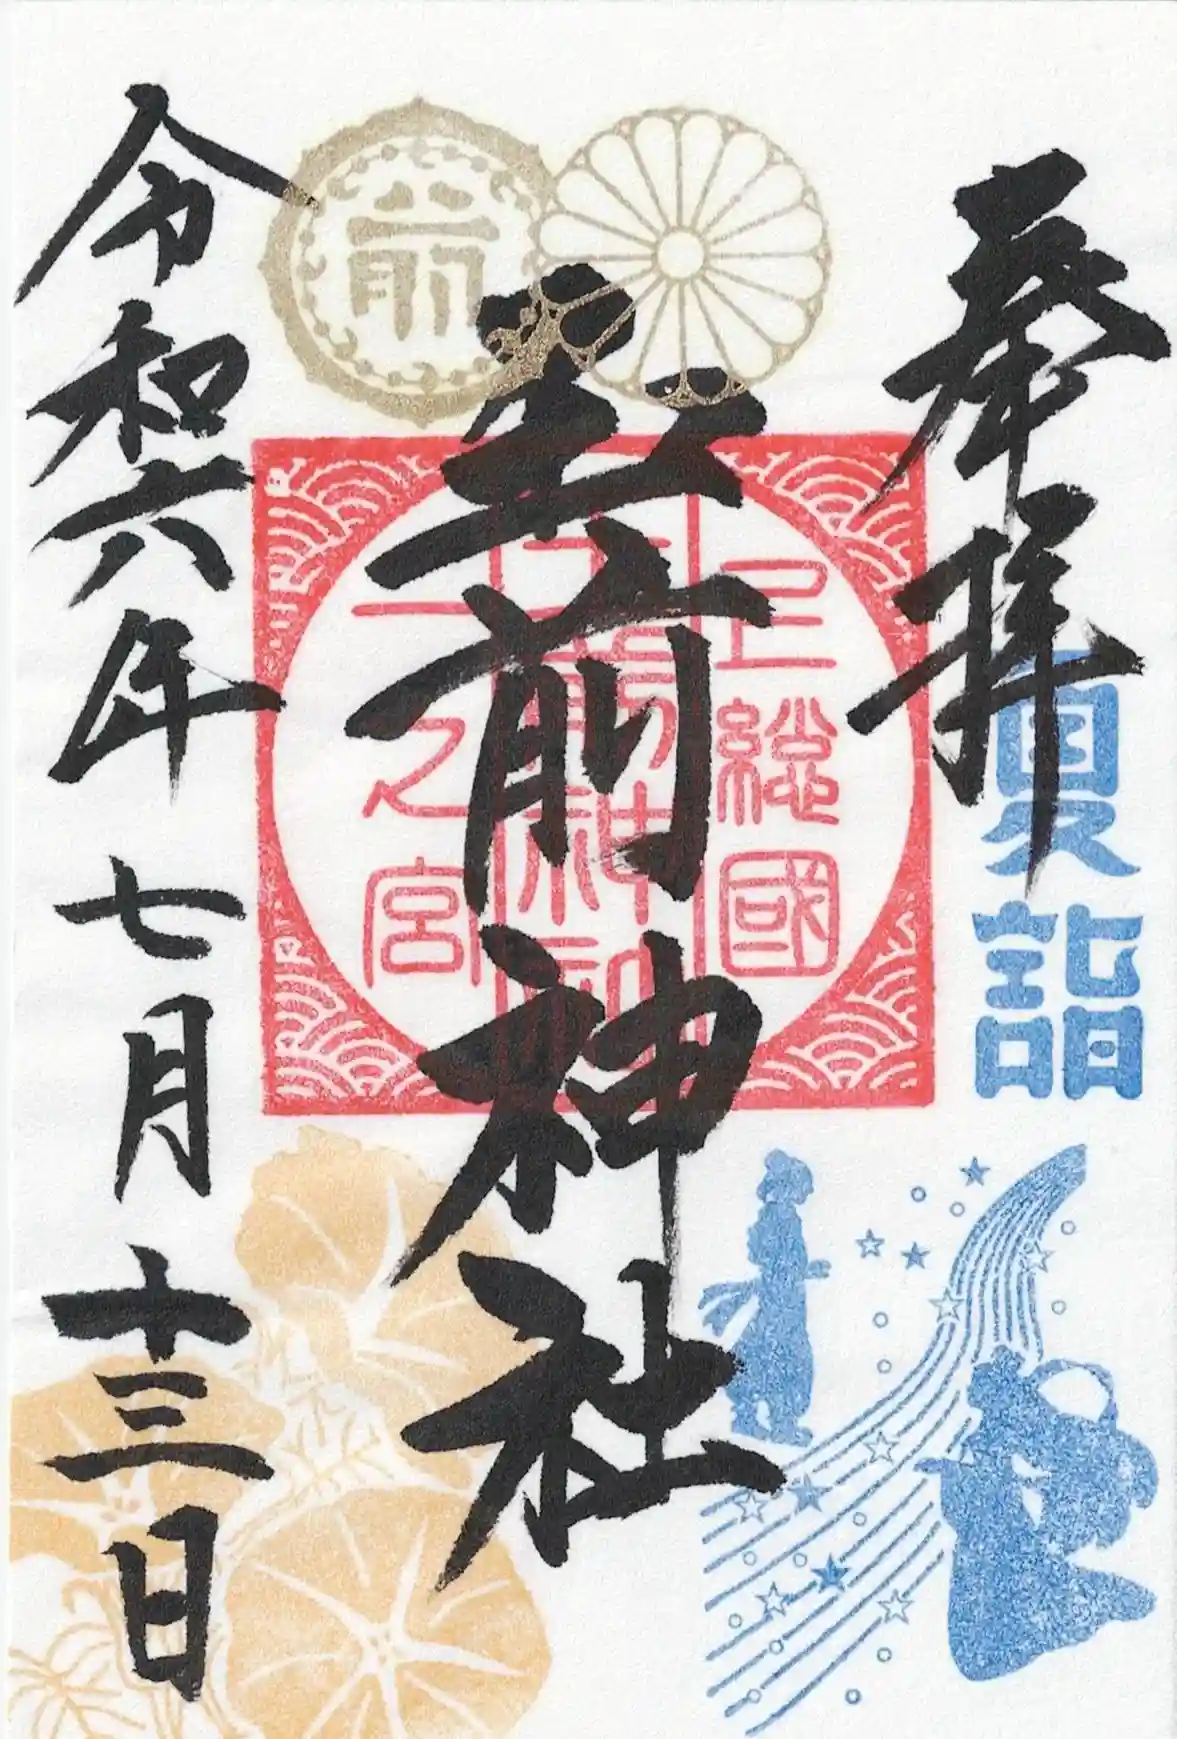 奉拝
夏詣
玉前神社
上総國
玉前神社
一之宮
前
令和六年七月十三日